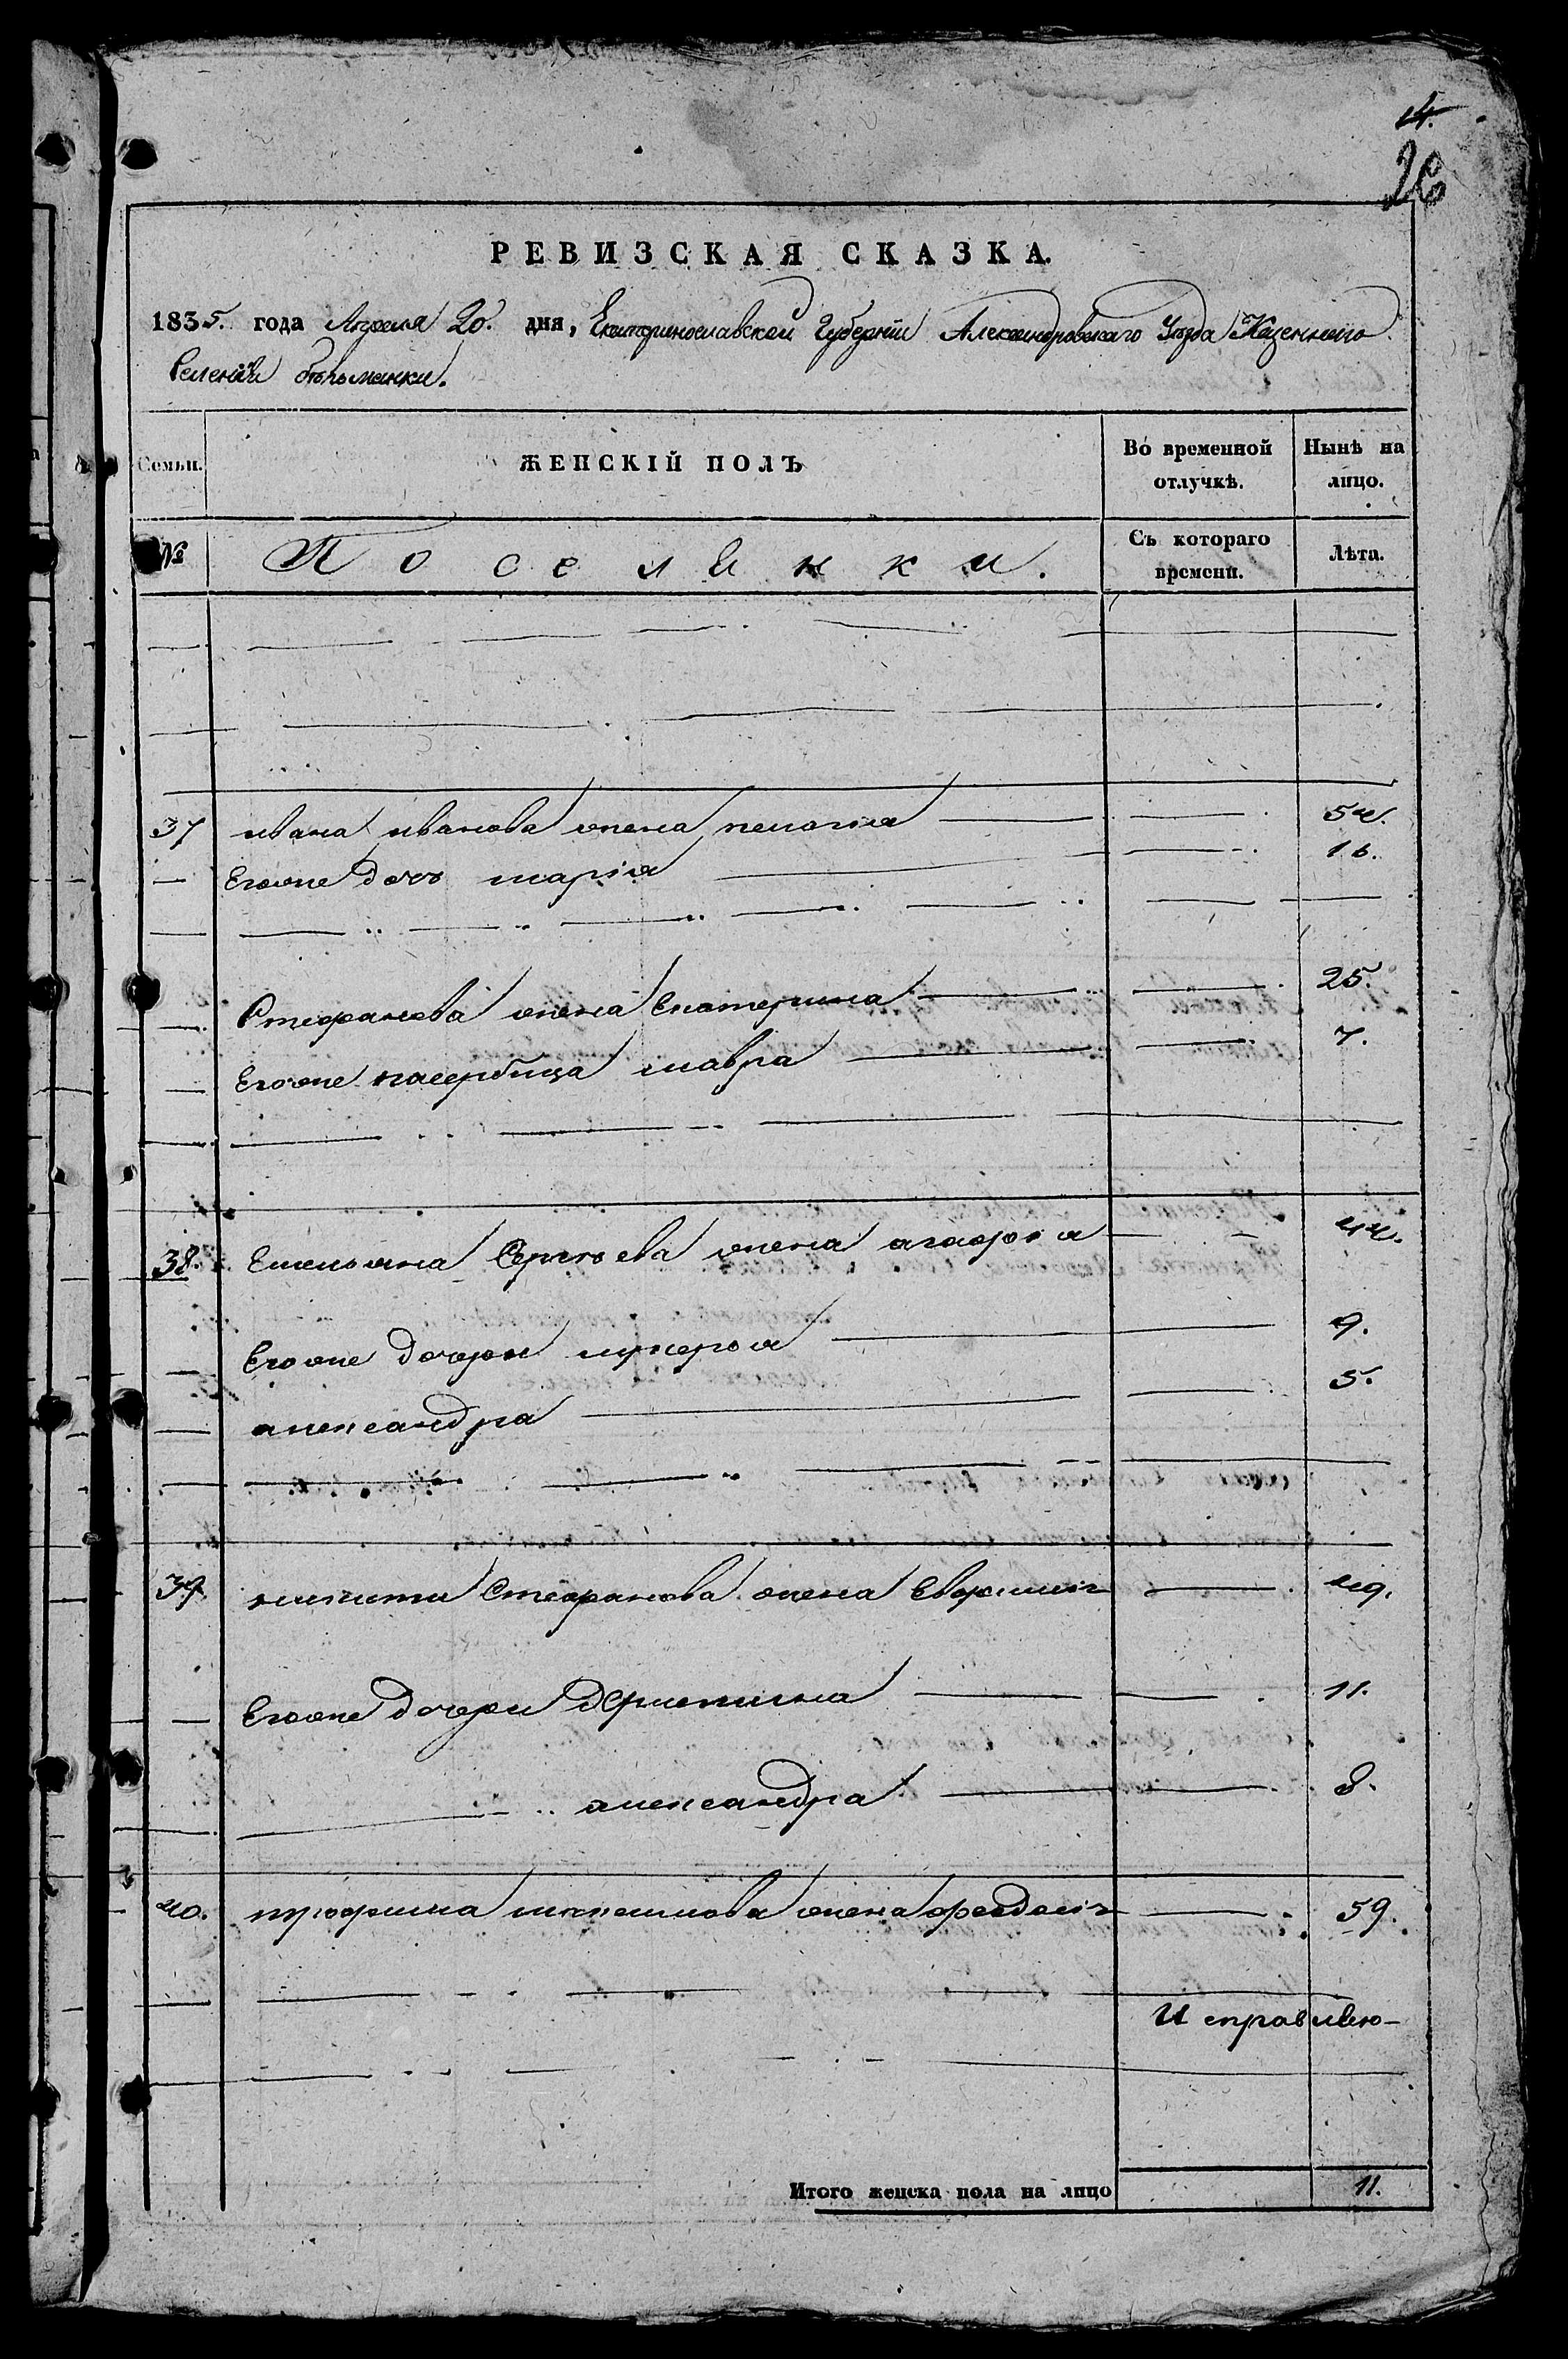 14.
26
РЕВИЗСКАЯ СКАЗКА.
1835. года Апреля 20. дня, Екатеринославской Губерніи Александровскаго Уезда Казеннаго
Селенія
Семьи. ЖЕНСКІЙ ПОЛЪ Во временной отлучкѣ. Нынѣ на лицо.
№ Поселянки. Съ котораго времени. Лѣта.
37 ивана иванова жена пелагия 54.
Егоже дочь марія 16.
Стефанова жена Екатерина 25.
Егоже пасербица мавра 7.
38. Емельяна Сергеева жена агафия 44.
Егоже дочери лукерья 9.
александра 5.
39. никиты Стефанова жена Евфимия 49.
Егоже дочери 11.
александра 8.
40. трофима жена феодосія 59.
И справилею-
Итого женска пола на лицо 11.